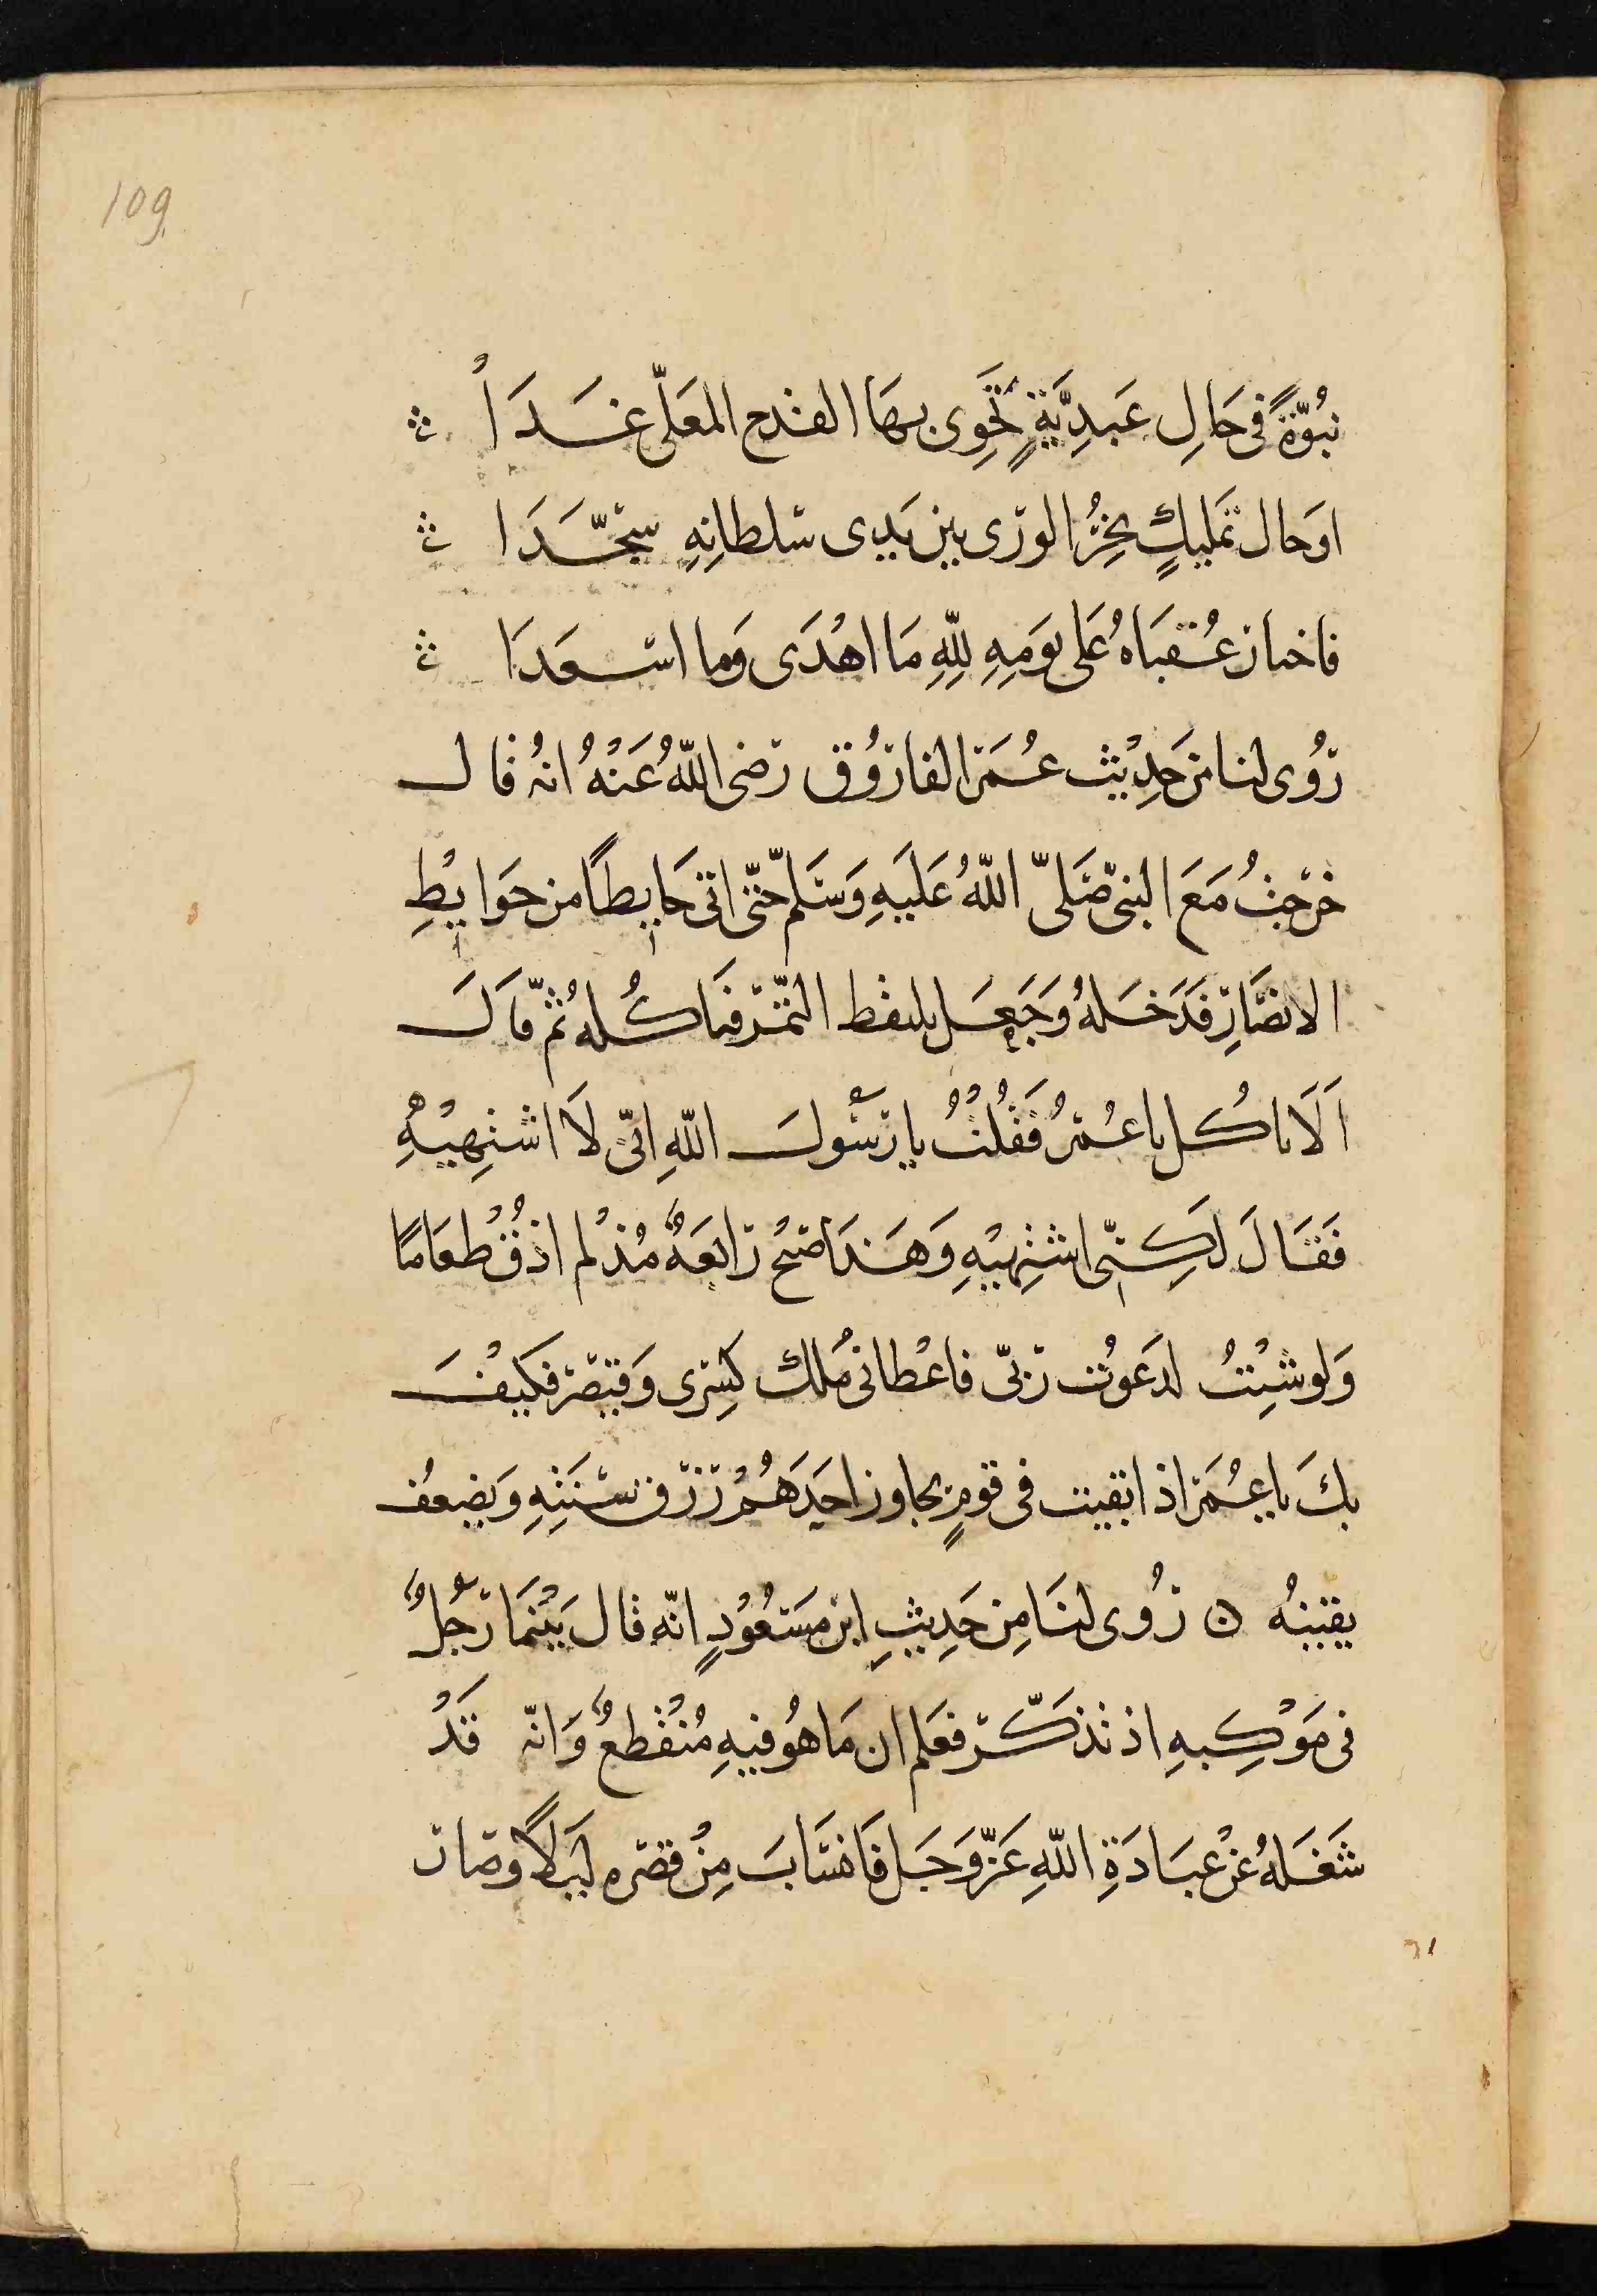 109
نبُوّةً في حَالِ عَبدِيَّةٍ تَحَوِى بهَا القدح المعَلّى غَدَاً
اوَ حال تمَليكٍ يَخِرُّ الورَى بين يَدِى سلطانِهِ سجَّدَا
فاختار عُقبَاهُ عَلى يوَمِهِ لِلّهِ مَا اهُدَى وَما اسعَدَا
رُوى لنا من حَدِيْثِ عُمَر الفارُوُق رضى اللّهُ عَنْهُ انهُ قال
خرَجتُ مَعَ النبيّ صَلىّ اللّهُ عَلَيَهِ وَسَلمّ حتىّ اتى حَايطًا من حوَايْطِ
الانصَارِ فَدَخَلهُ وَجَعَل يلتقط التمَّرَ فيَاكُله ثمُّ قاَلَ
اَلاَ تاكُل يا عُمرُ فَقُلْتُ يا رَسُولَ اللّهِ انىّ لاَ اشتهِيْهُِ
فَقَالَ لَكِنىّ اشتهِيْهِ وَهَذا صبُح رَابعَةٌ مُنذْ لم اذقُ طعَامًا
وَلو شِئتُ لدَعوُت رَبىّ فاعْطانى مُلك كِسرَى وَقيصَر فكيْفَ
بكَ يا عُمَر اذا بقيت في قومٍ يجاوز احَدَهُمُ رزق سَنَتِهِ وَيضعُف
يقينهُ ن رُوى لنَا مِن حَدِيثِ ابن مسَعُوُدٍ انّه قال بَيْنمَا رَجُلٌ
في مَوْكِبهِ اذ تذكّر فعَلم ان مَا هُو فيهِ مُنْقطعٌ وَانّه قَدْ
شَغَلهُ عَنْ عبَادَةِ اللّهِ عَزّ وَجَل فَانسَابَ مِنْ قصَره لَيلاً وصار